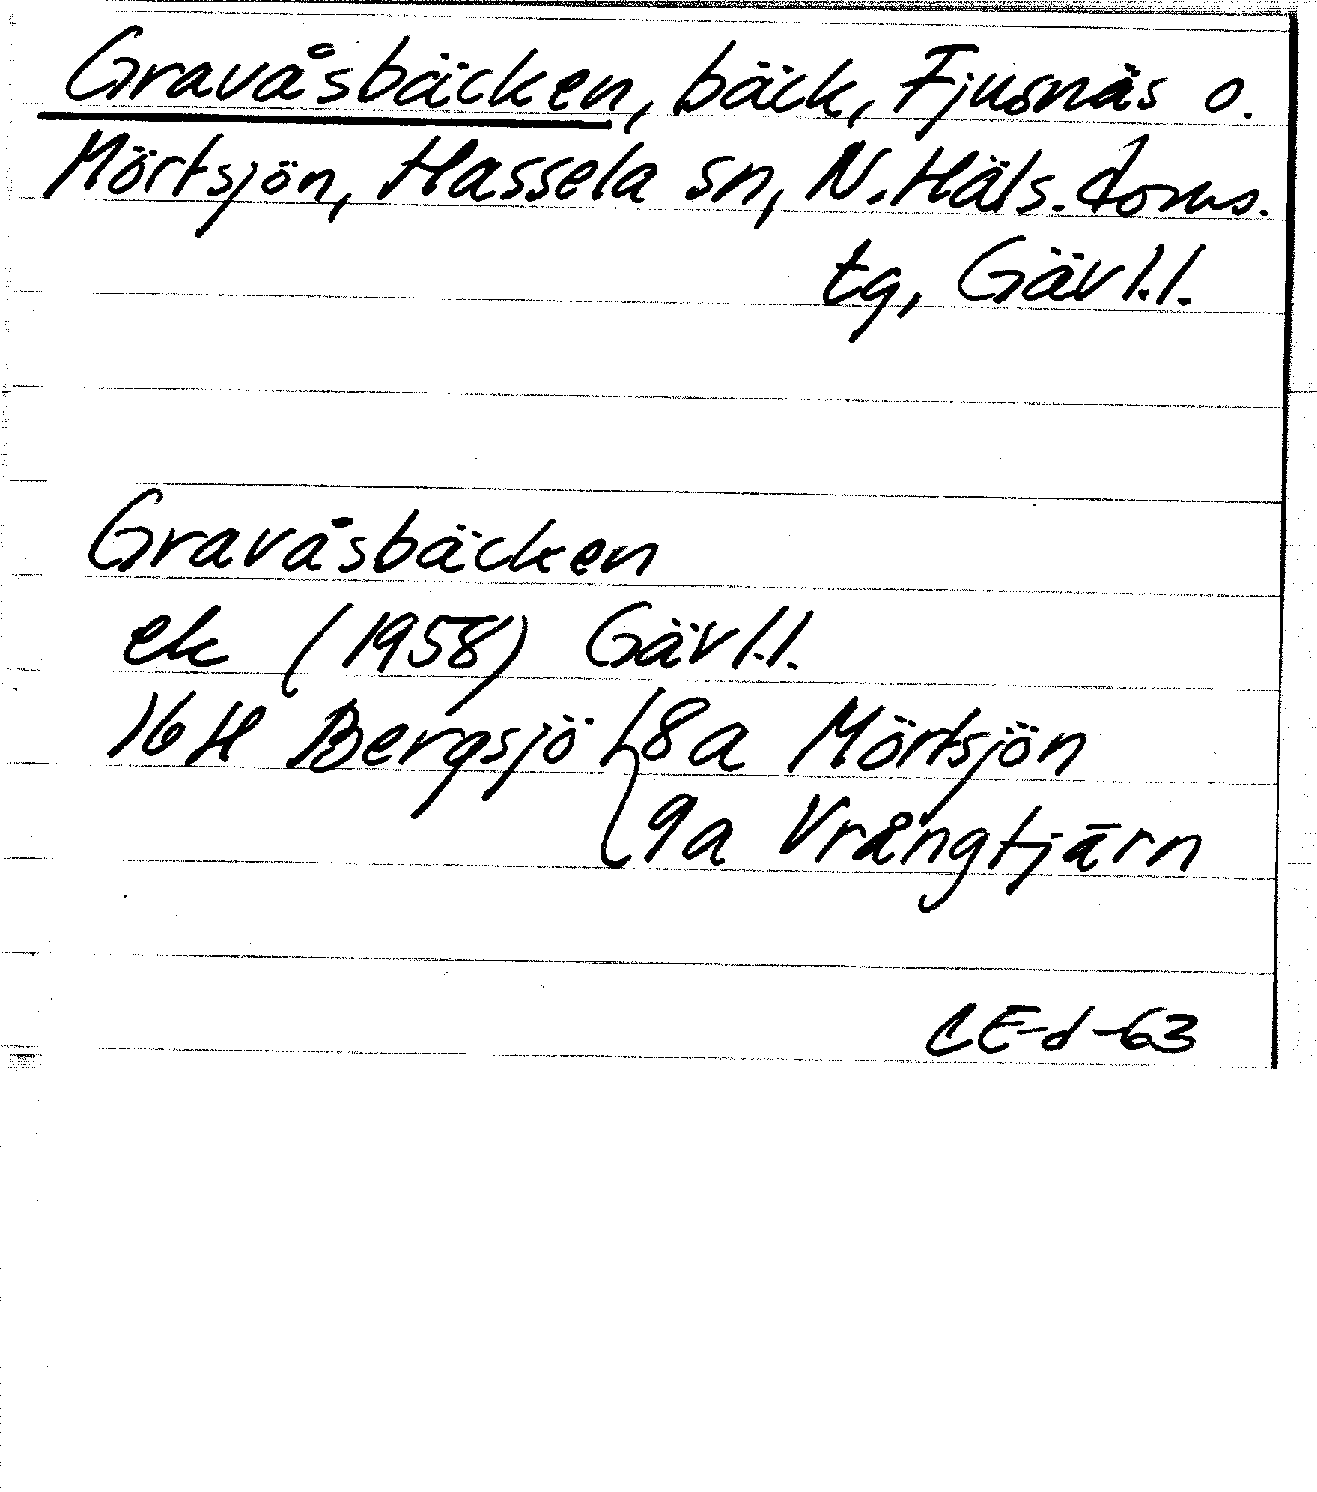 Gravåsbäcken, bäck, Fjusnäs o.
Mörtsjön, Hassela sn, N.Häls.doms.
tg, Gävl.l.
Gravåsbäcken
ek (1958) Gävl.l.
16H Bergsjö { 8a Mörtsjön
9a Vrångtjärn
CE-d-63